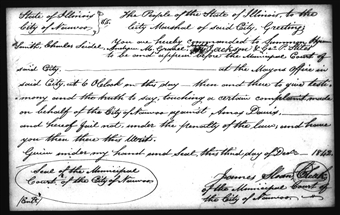 State of Illinois,
City of Nauvoo, } ss. The People of the State of Illinois, to the
City Marshal of said City, Greeting;
You are hereby commanded to summon
Smith, Charles Seidel, Jackson & Geo. P. Stiles
to be and appear before the Municipal Court of
said City at the Mayors Office in
said City, at 6 Oclock on this day then and there to give testi-
mony and the truth to say, touching a certain complaint made
on behalf of the City of Nauvoo against Amos Davis.
and hereof fail not, under the penalty of the law, and have
you then there this Writ.
Given under my hand and seal, this third day of Decr 1842.
Seal of the Municipal
Court, of the City of Nauvoo.
James Sloan Clerk
of the Municipal Court of
the City of Nauvoo.